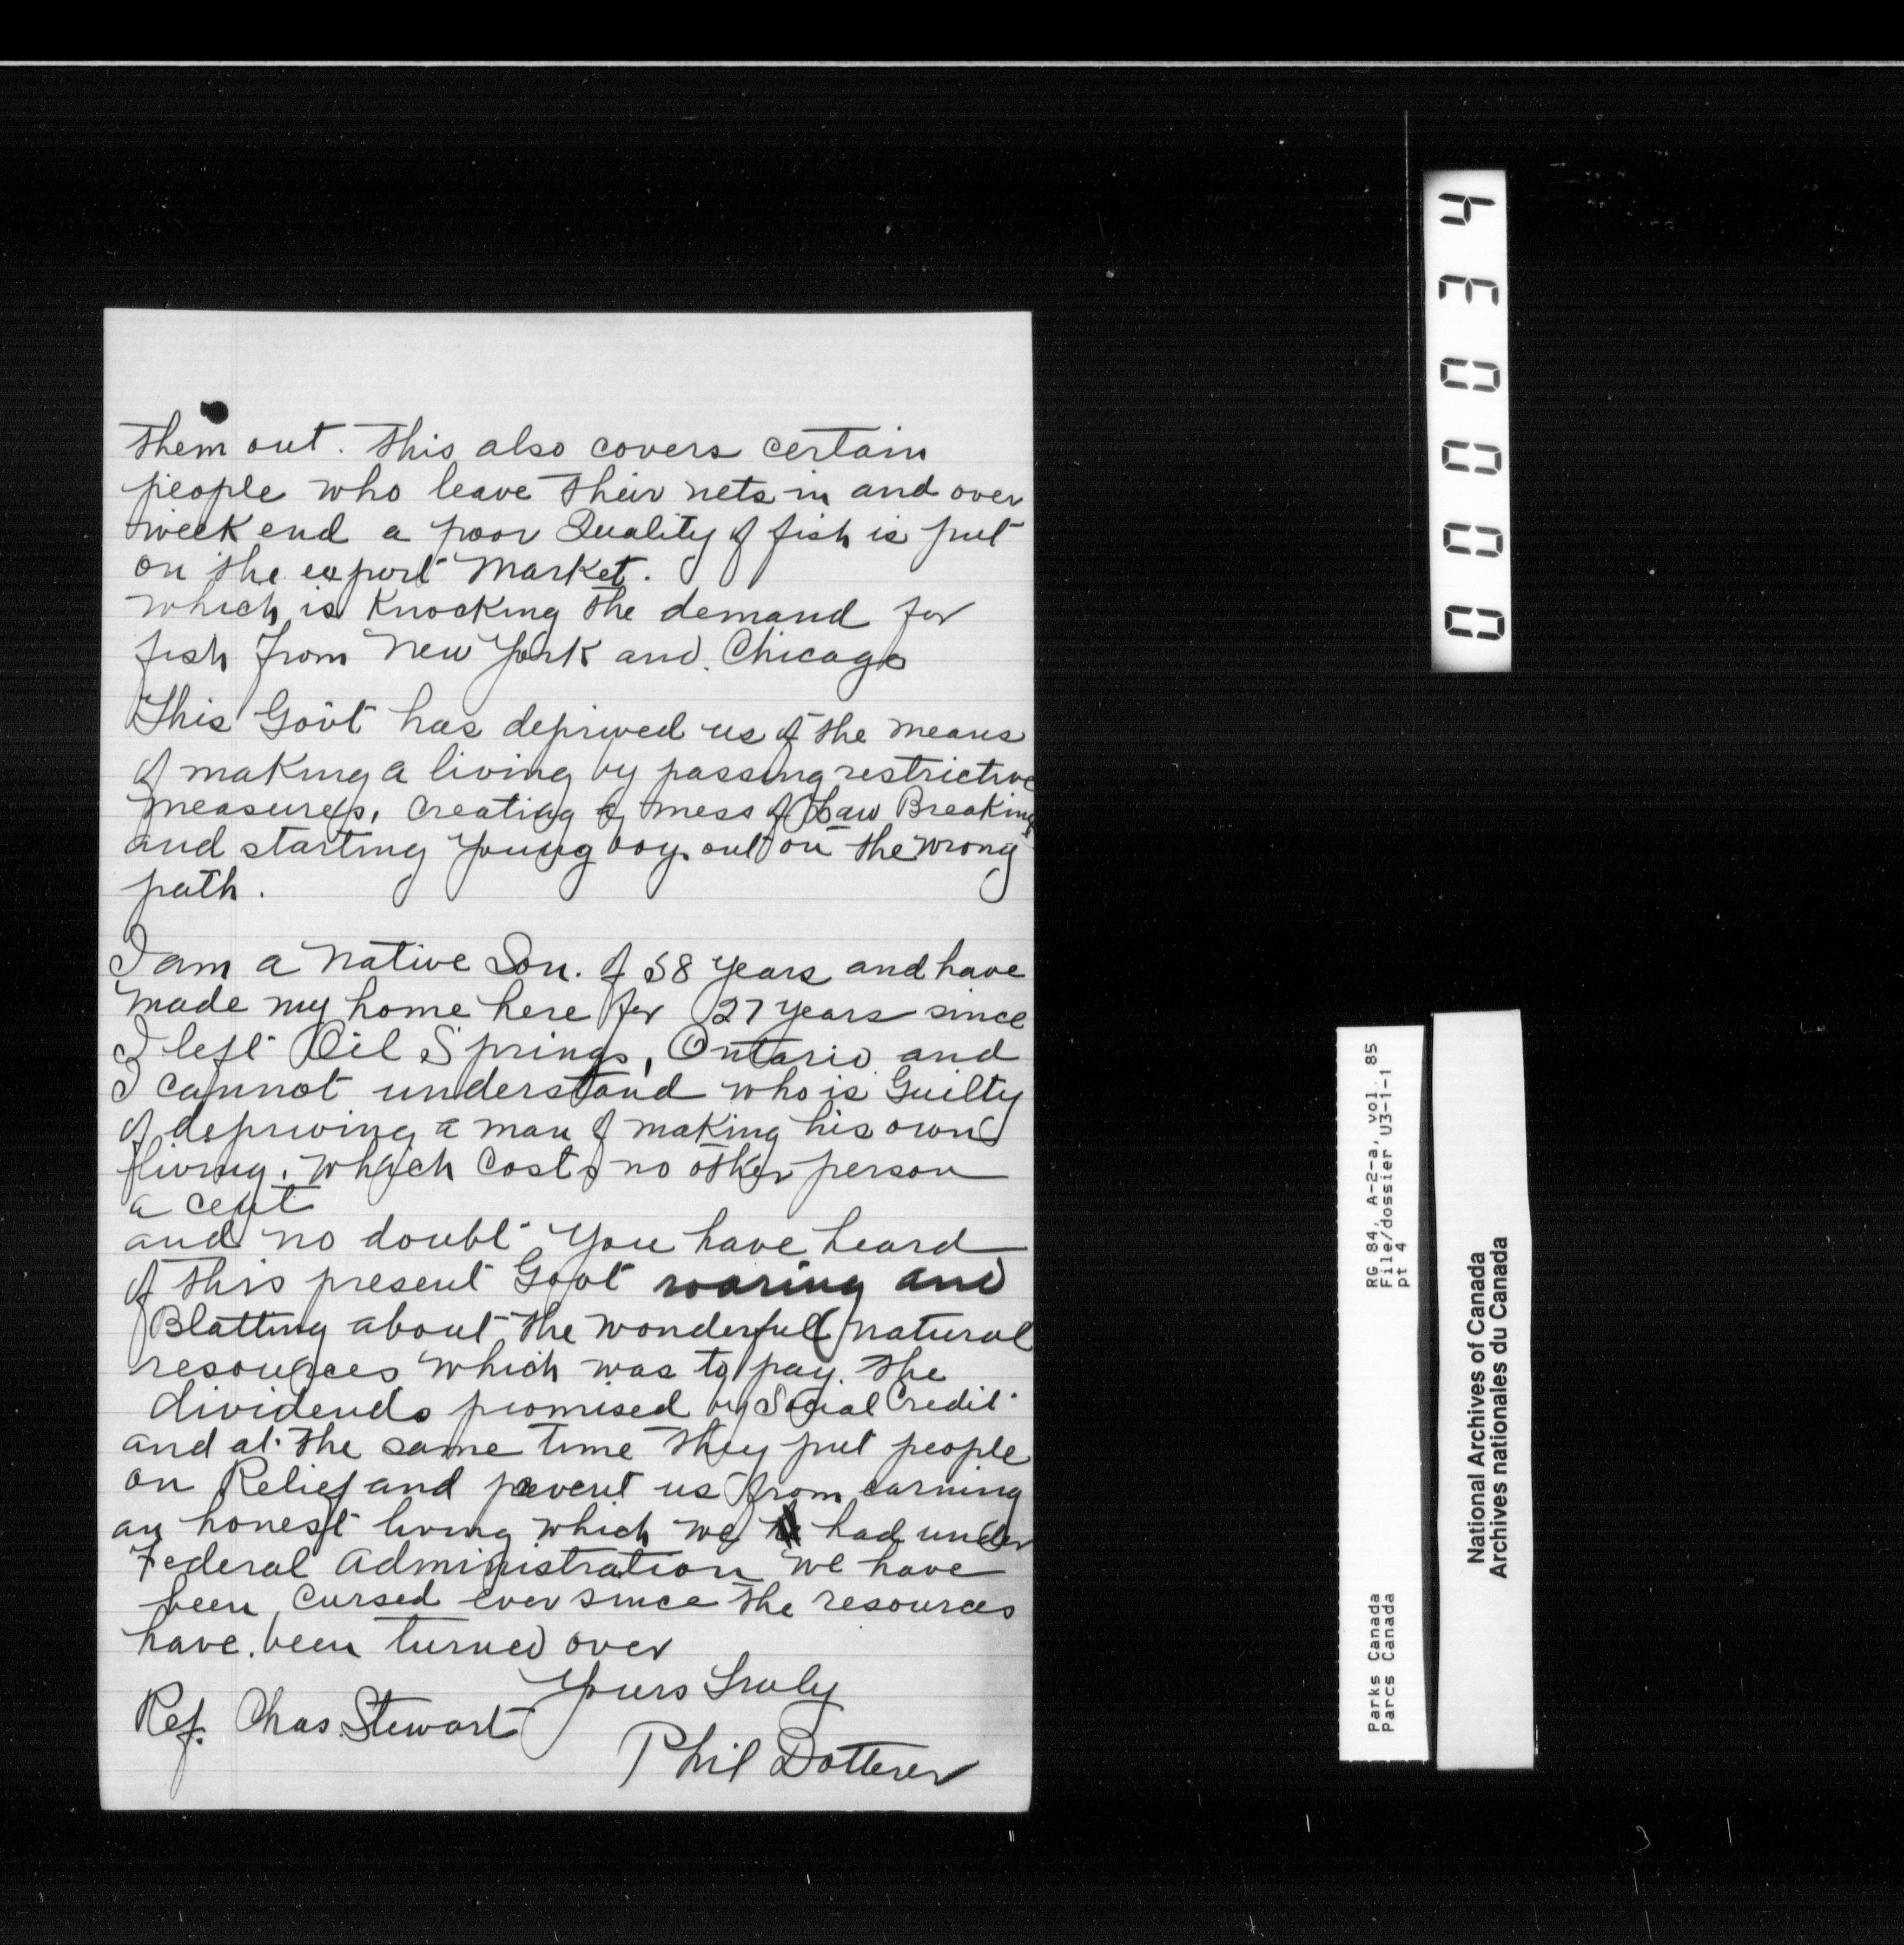 them out. This also covers certain
people who leave their nets in and over
week end a poor Quality of fish is put
on the export Market.
which is Knocking the demand for
fish from New York and. Chicago
This Govt has deprived us of the means
of making a living by passing restrictive
measures, creating a mess of Law Breaking
and starting young boys out on the wrong
path.
I am a native Son. of 58 years and have
made my home here for 27 years since
I left Oil Springs, Ontario and
I cannot understand who is Guilty
of depriving a man of making his own
living. which costs no other person
a cent
and no doubt you have heard
of this present Govt roaring and
Blatting about the wonderfull natural
resources which was to pay. the
dividends promised by Social Credit
and at the same time they put people
on Relief and prevent us from earning
an honest living which we had under
Federal administration we have
been cursed ever since the resources
have been turned over
Yours Truly
Ref. Chas. Stewart
Phil Dotterer
000034
RG 84, A-2-a, vol. 85
File/dossier U3-1-1
pt 4
Parks Canada
Parcs Canada
National Archives of Canada
Archives nationales du Canada